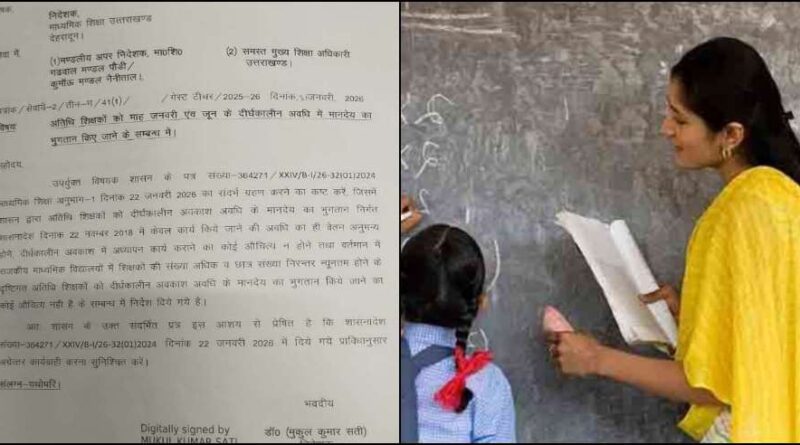 निदेशक,
माध्यमिक शिक्षा उत्तराखण्ड
देहरादून।
(1)मण्डलीय अपर निदेशक, मा०शि० (2) समस्त मुख्य शिक्षा अधिकारी
गढवाल मण्डल पौडी/ उत्तराखण्ड।
कुमॉऊ मण्डल नैनीताल।
/सेवायें-2/तीन-म/41(1)/ /गेस्ट टीचर/2025-26 दिनांक जनवरी, 2026
अतिथि शिक्षकों को माह जनवरी एंव जून के दीर्घकालीन अवधि में मानदेय का
भुगतान किए जाने के सम्बन्ध में।
महोदय,
उपर्युक्त विषयक शासन के पत्र संख्या-364271/XXIV/B-I/26-32(01)2024
माध्यमिक शिक्षा अनुभाग-1 दिनांक 22 जनवरी 2026 का संदर्भ ग्रहण करने का कष्ट करें, जिसमें
शासन द्वारा अतिथि शिक्षकों को दीर्घकालीन अवकाश अवधि के मानदेय का भुगतान निर्गत
शासनादेश दिनांक 22 नवम्बर 2018 में केवल कार्य किये जाने की अवधि का ही वेतन अनुमन्य
होने, दीर्घकालीन अवकाश में अध्यापन कार्य कराने का कोई औचित्य न होने तथा वर्तमान में
राजकीय माध्यमिक विद्यालयों में शिक्षकों की संख्या अधिक व छात्र संख्या निरन्तर न्यूनतम होने के
दृष्टिगत अतिथि शिक्षकों को दीर्घकालीन अवकाश अवधि के मानदेय का भुगतान किये जाने का
कोई औचित्य नही है के सम्बन्ध में निर्देश दिये गये है।
अतः शासन के उक्त संदर्भित पत्र इस आशय से प्रेषित है कि शासनादेश
संख्या-364271/XXIV/B-I/26-32(01)2024 दिनांक 22 जनवरी 2026 में दिये गये प्राविधानुसार
अग्रेत्तर कार्यवाही करना सुनिश्चित करें।
संलग्न-यथोपरि।
भवदीय
Digitally signed by
MUKUL KUMAR SATI
डॉ० (मुकुल कुमार सती)
निदेशक